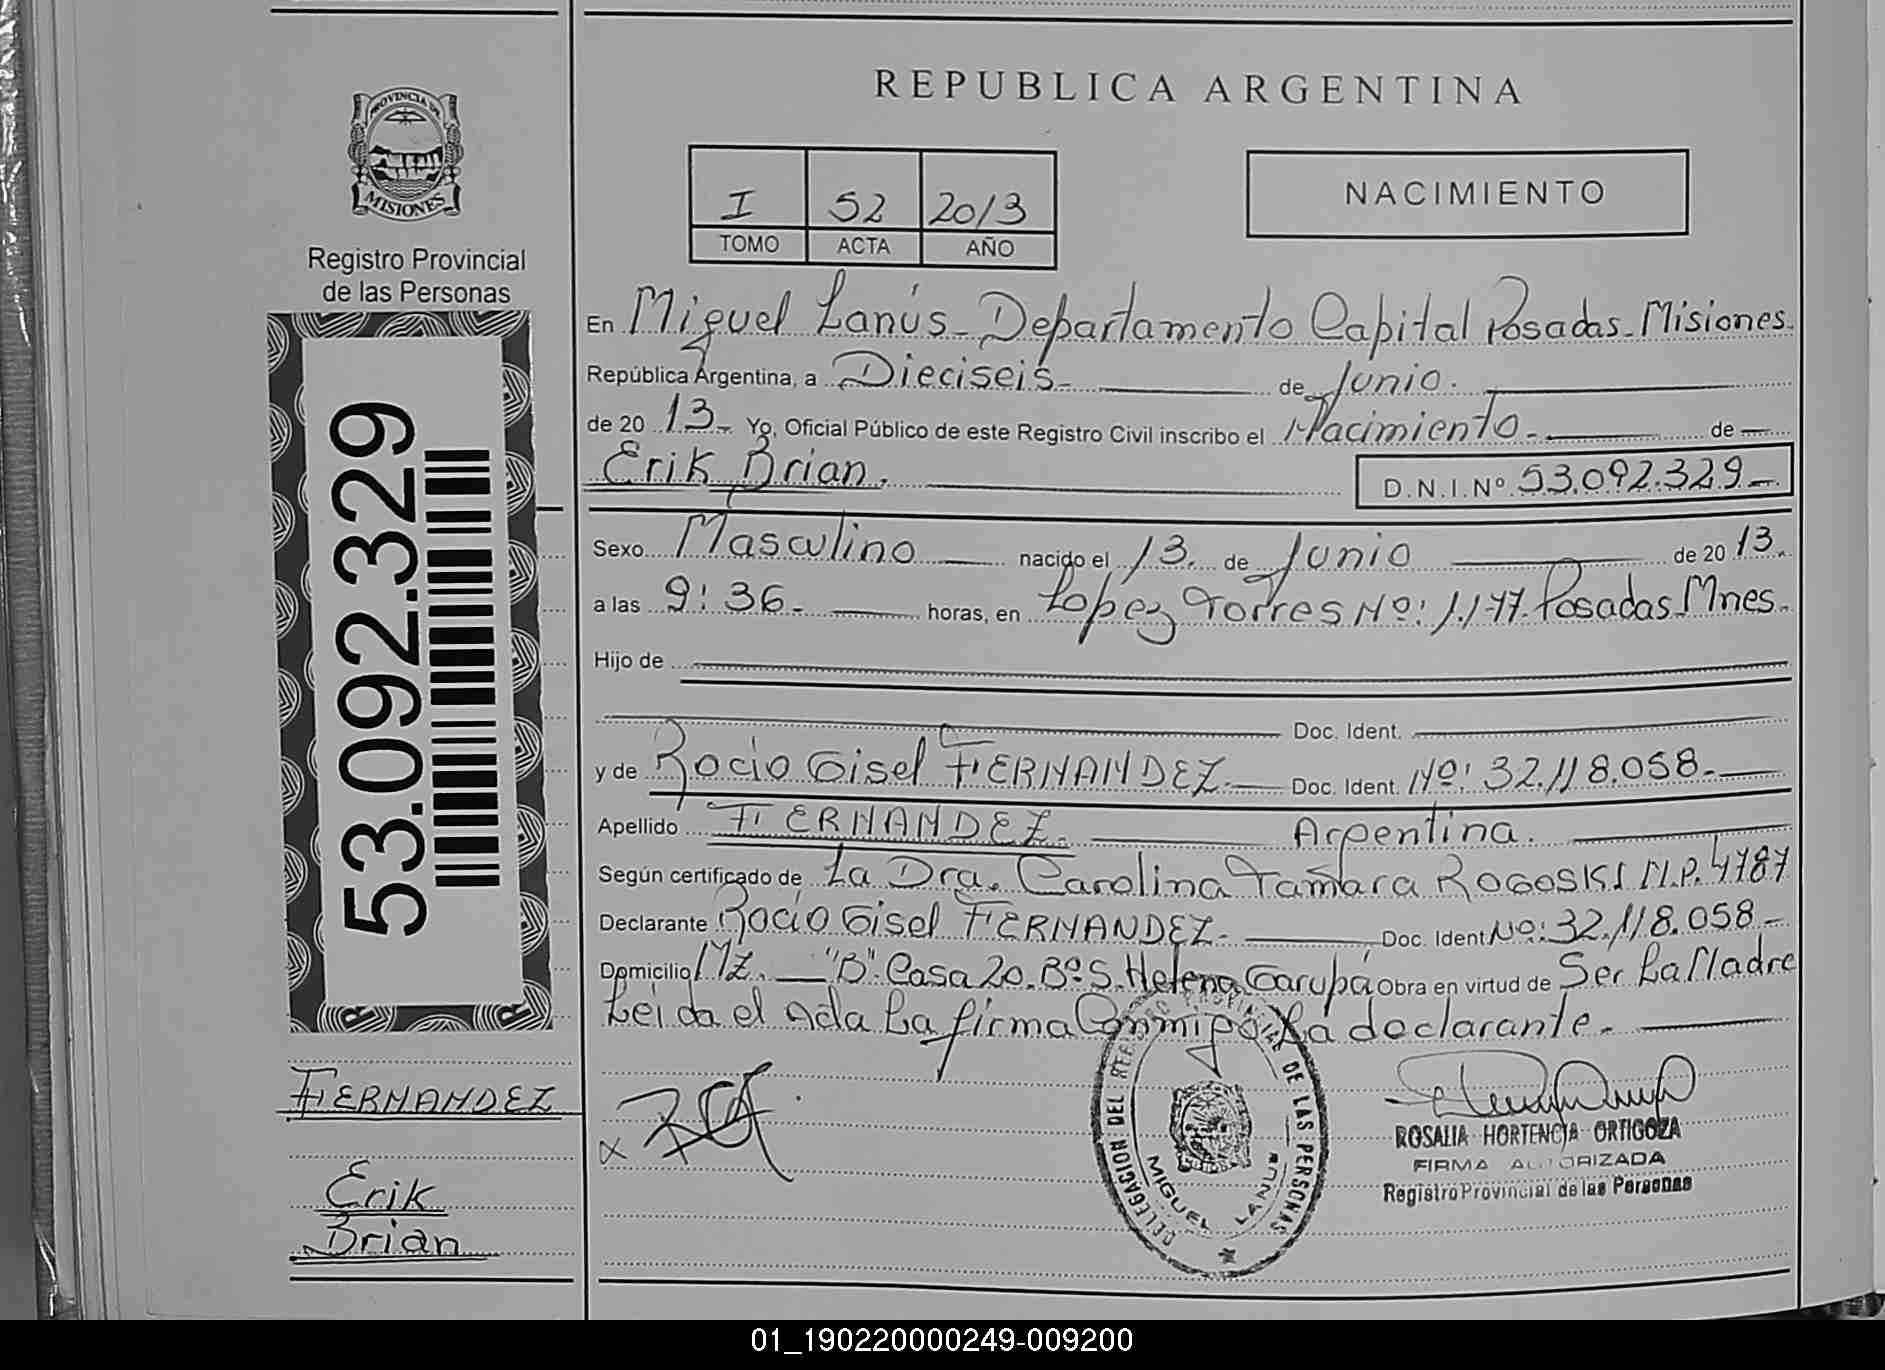 REPUBLICA ARGENTINA
PROVINCIA DE
MISIONES
Registro Provincial
de las Personas
I 52 2013
TOMO ACTA AÑO
NACIMIENTO
53.092.329
En Miguel Lanús - Departamento Capital Posadas - Misiones.
República Argentina, a Dieciseis - de Junio.
de 20 13 - Yo, Oficial Público de este Registro Civil inscribo el Nacimiento - de
Erik Brian. D.N.I.Nº 53.092.329 -
Sexo Masculino nacido el 13. de Junio de 20 13.
a las 9:36 - horas, en Lopez Torres Nº: 1.177. Posadas Mnes.
Hijo de
Doc. Ident.
y de Rocio Gisel FERNANDEZ. Doc. Ident. Nº: 32.118.058 -
Apellido FERNANDEZ. Argentina.
Según certificado de La Dra. Carolina Tamara ROGOSKI M.P. 4787
Declarante Rocio Gisel FERNANDEZ - Doc. Ident Nº: 32.118.058 -
Domicilio MZ. — "B". Casa 20. Bº S. Helena Garupá Obra en virtud de Ser La Madre
Leida el Acta La firma Conmigo La declarante -
FERNANDEZ
Erik
Brian
DELEGACION DEL REGISTRO PROVINCIAL DE LAS PERSONAS
MIGUEL LANUS
ROSALIA HORTENCIA ORTIGOZA
FIRMA AUTORIZADA
Registro Provincial de las Personas
01_190220000249-009200